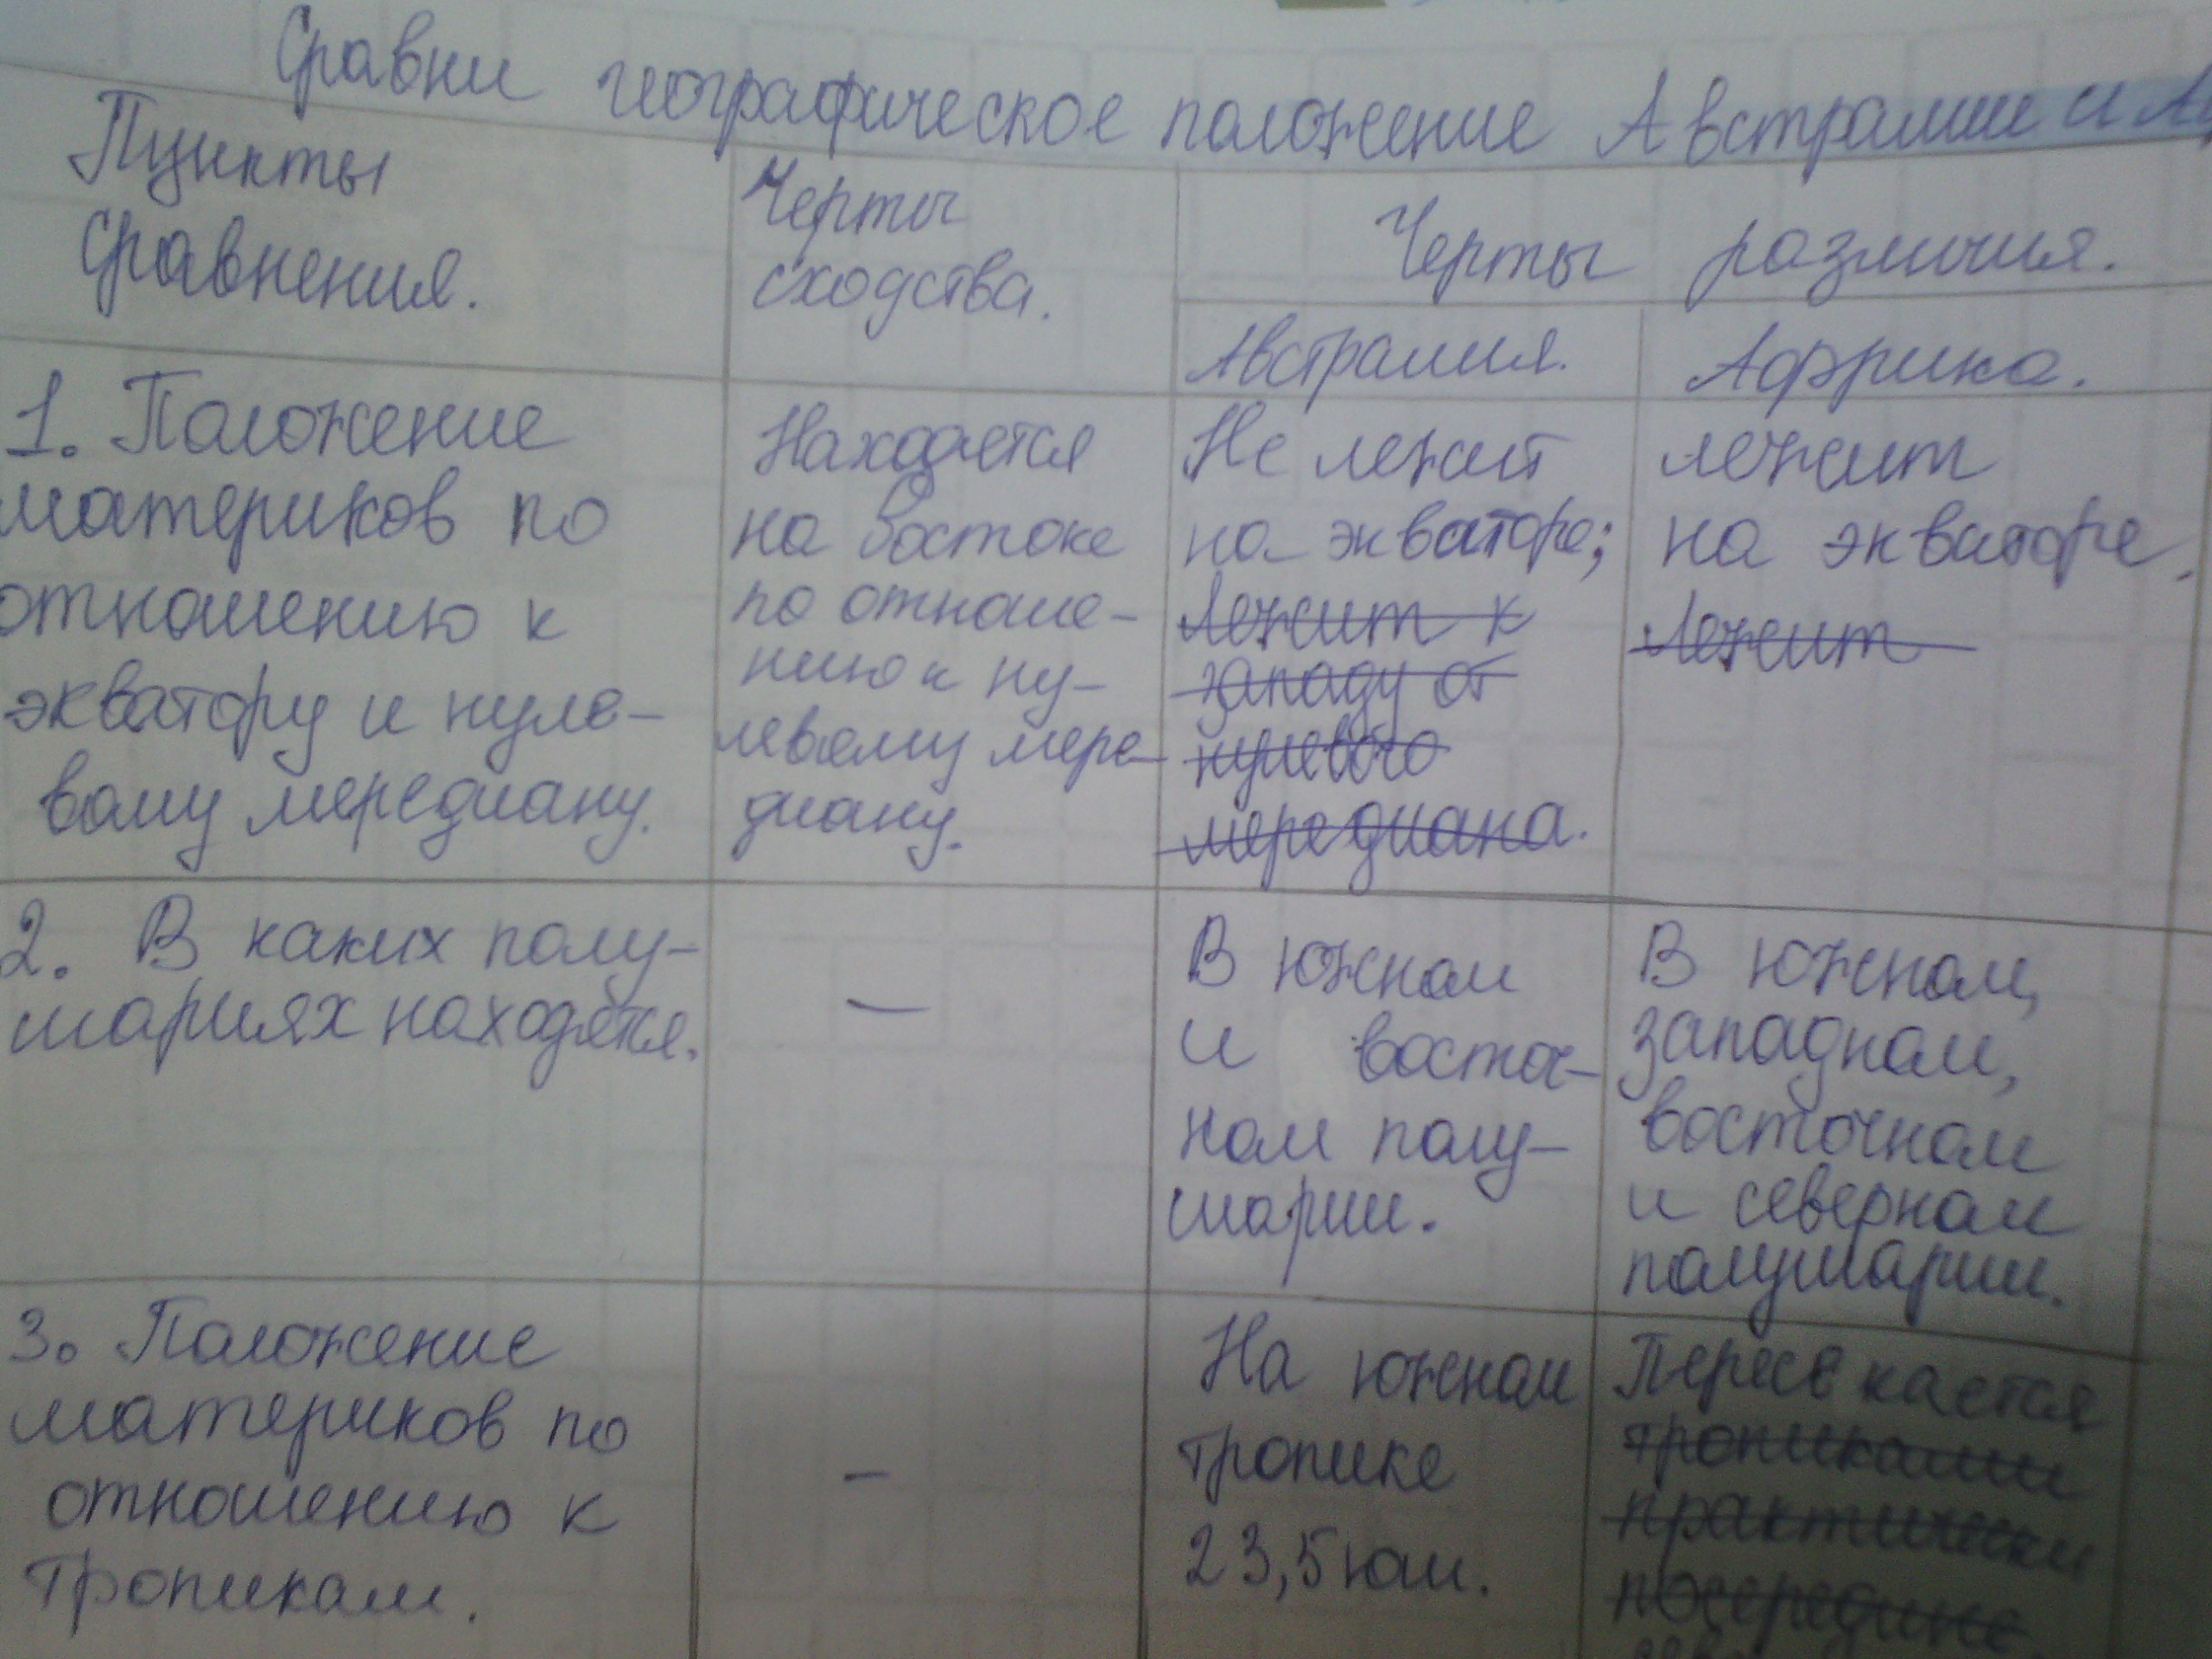 Сравни географическое положение Австралии и А
Пункты
Сравнения.
Черты
сходства.
Черты различия.
Австралия.
Африка.
1. Положение
материков по
отношению к
экватору и нуле-
вому мередиану.
Находится
на востоке
по отноше-
нию к ну-
левому мере-
диану.
Не лежит
на экваторе;
Лежит к
западу от
нулевого
мередиана.
лежит
на экваторе.
Лежит
2. В каких полу-
шариях находятся.
—
В южном
и восточ-
ном полу-
шарии.
В южном,
западном,
восточном
и северном
полушарии.
3. Положение
материков по
отношению к
тропикам.
–
На южном
тропике
23,5 юш.
Пересекается
тропиками
практически
посередине